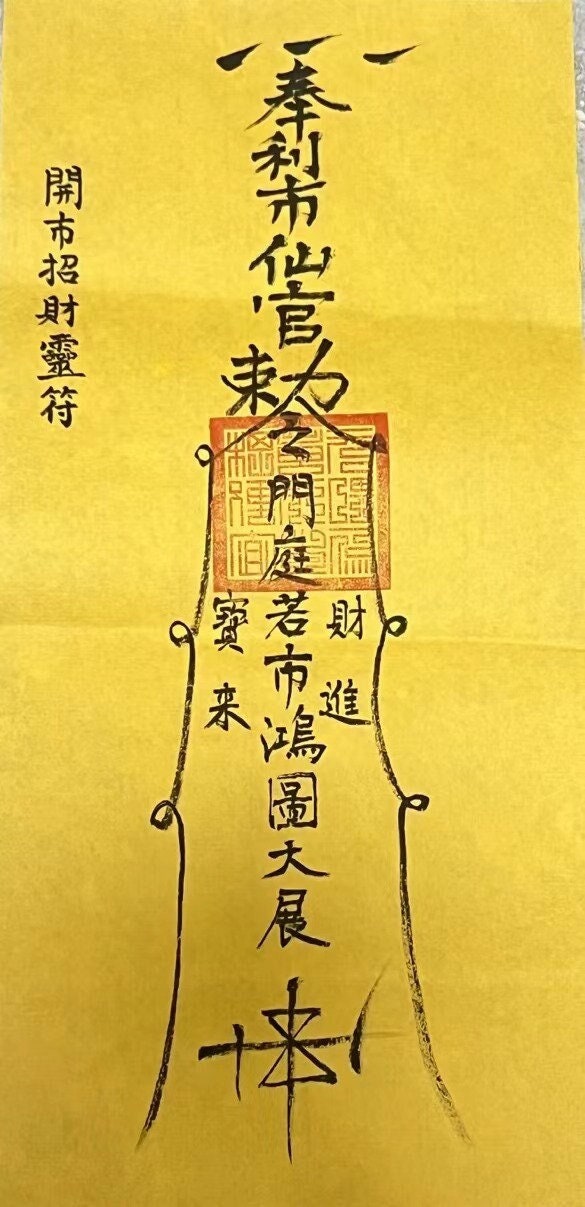 奉利市仙官勅令門庭若市鴻圖大展
財進
寶来
開市招財靈符